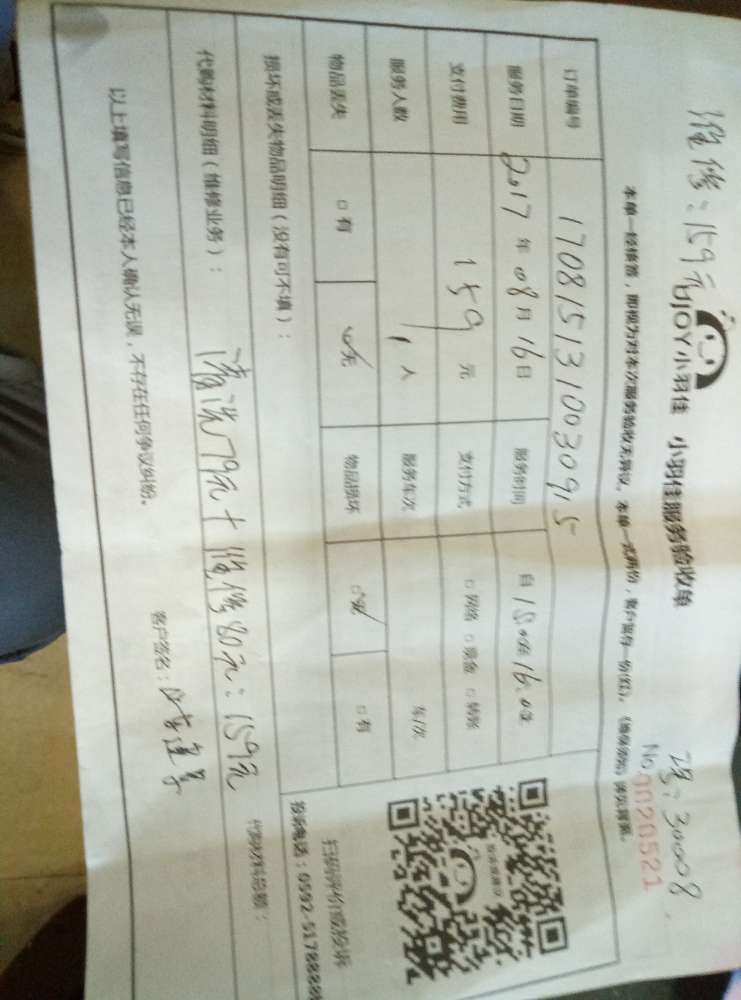 维修：159元
项：30008
UJOY小羽佳 小羽佳服务验收单
No 0020521
本单一经签署，即视为对本次服务验收无异议。本单一式两份，客户留存一份(红)。
订单编号 1708151310030915
服务日期 2017年08月16日 服务时间 自15:00至16:00
支付费用 159元 支付方式 □网络 □现金 □转账
服务人数 1人 服务车次 车/次
物品丢失 □有 □无 物品损坏 □无 □有
损坏或丢失物品明细（没有可不填）：
扫码评价或投诉
投诉电话：0592-5178888
代购材料明细（维修业务）：
清洗79元+维修80元：159元
代购材料总额：
以上填写信息已经本人确认无误，不存在任何争议纠纷。
客户签名：